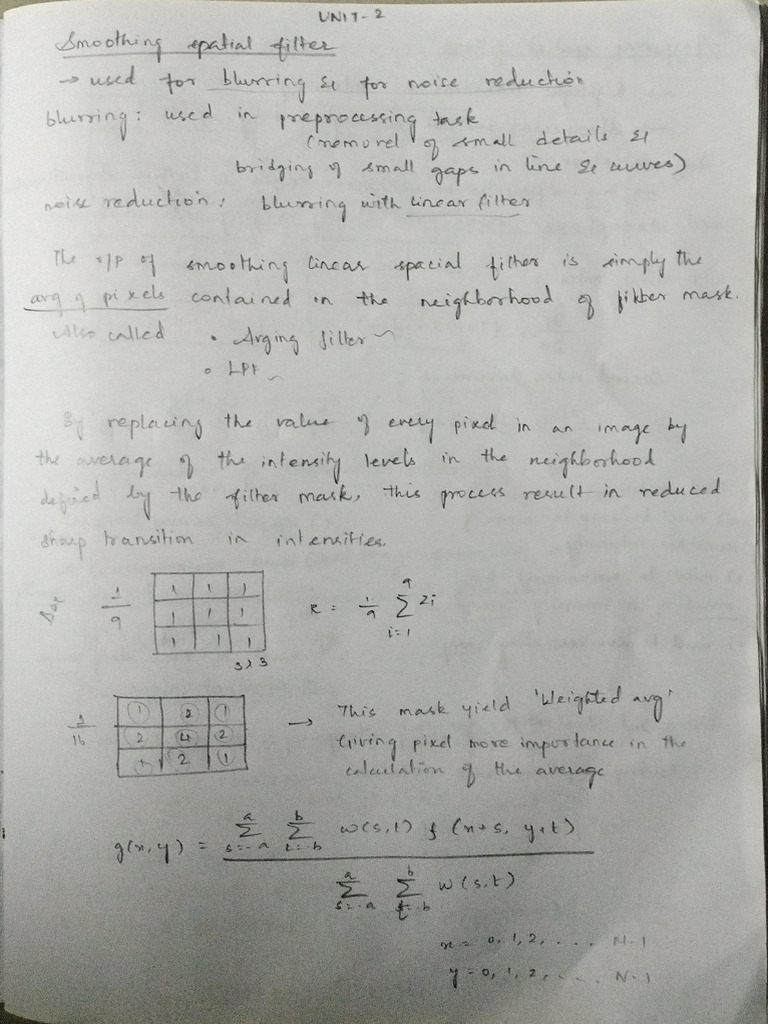 UNIT-2
Smoothing spatial filter
→ used for blurring & for noise reduction
blurring: used in preprocessing task
(removel of small details &
bridging of small gaps in line & curves)
noise reduction: blurring with linear filter
The o/p of smoothing linear spacial filter is simply the
avg of pixels contained in the neighborhood of filter mask.
Also called • Avging filter
• LPF
By replacing the value of every pixel in an image by
the average of the intensity levels in the neighborhood
defined by the filter mask, this process result in reduced
sharp transition in intensities.
1/9
1 1 1
1 1 1
1 1 1
3x3
R = 1/9 Σ i=1 9 zi
1/16
1 2 1
2 4 2
1 2 1
→ This mask yield 'Weighted avg'
Giving pixel more importance in the
calculation of the average
g(x,y) = Σ s=-a a Σ t=-b b w(s,t) f (x+s, y+t)
Σ s=-a a Σ t=-b b w(s,t)
x = 0,1,2, .... N-1
y = 0,1,2, .... N-1